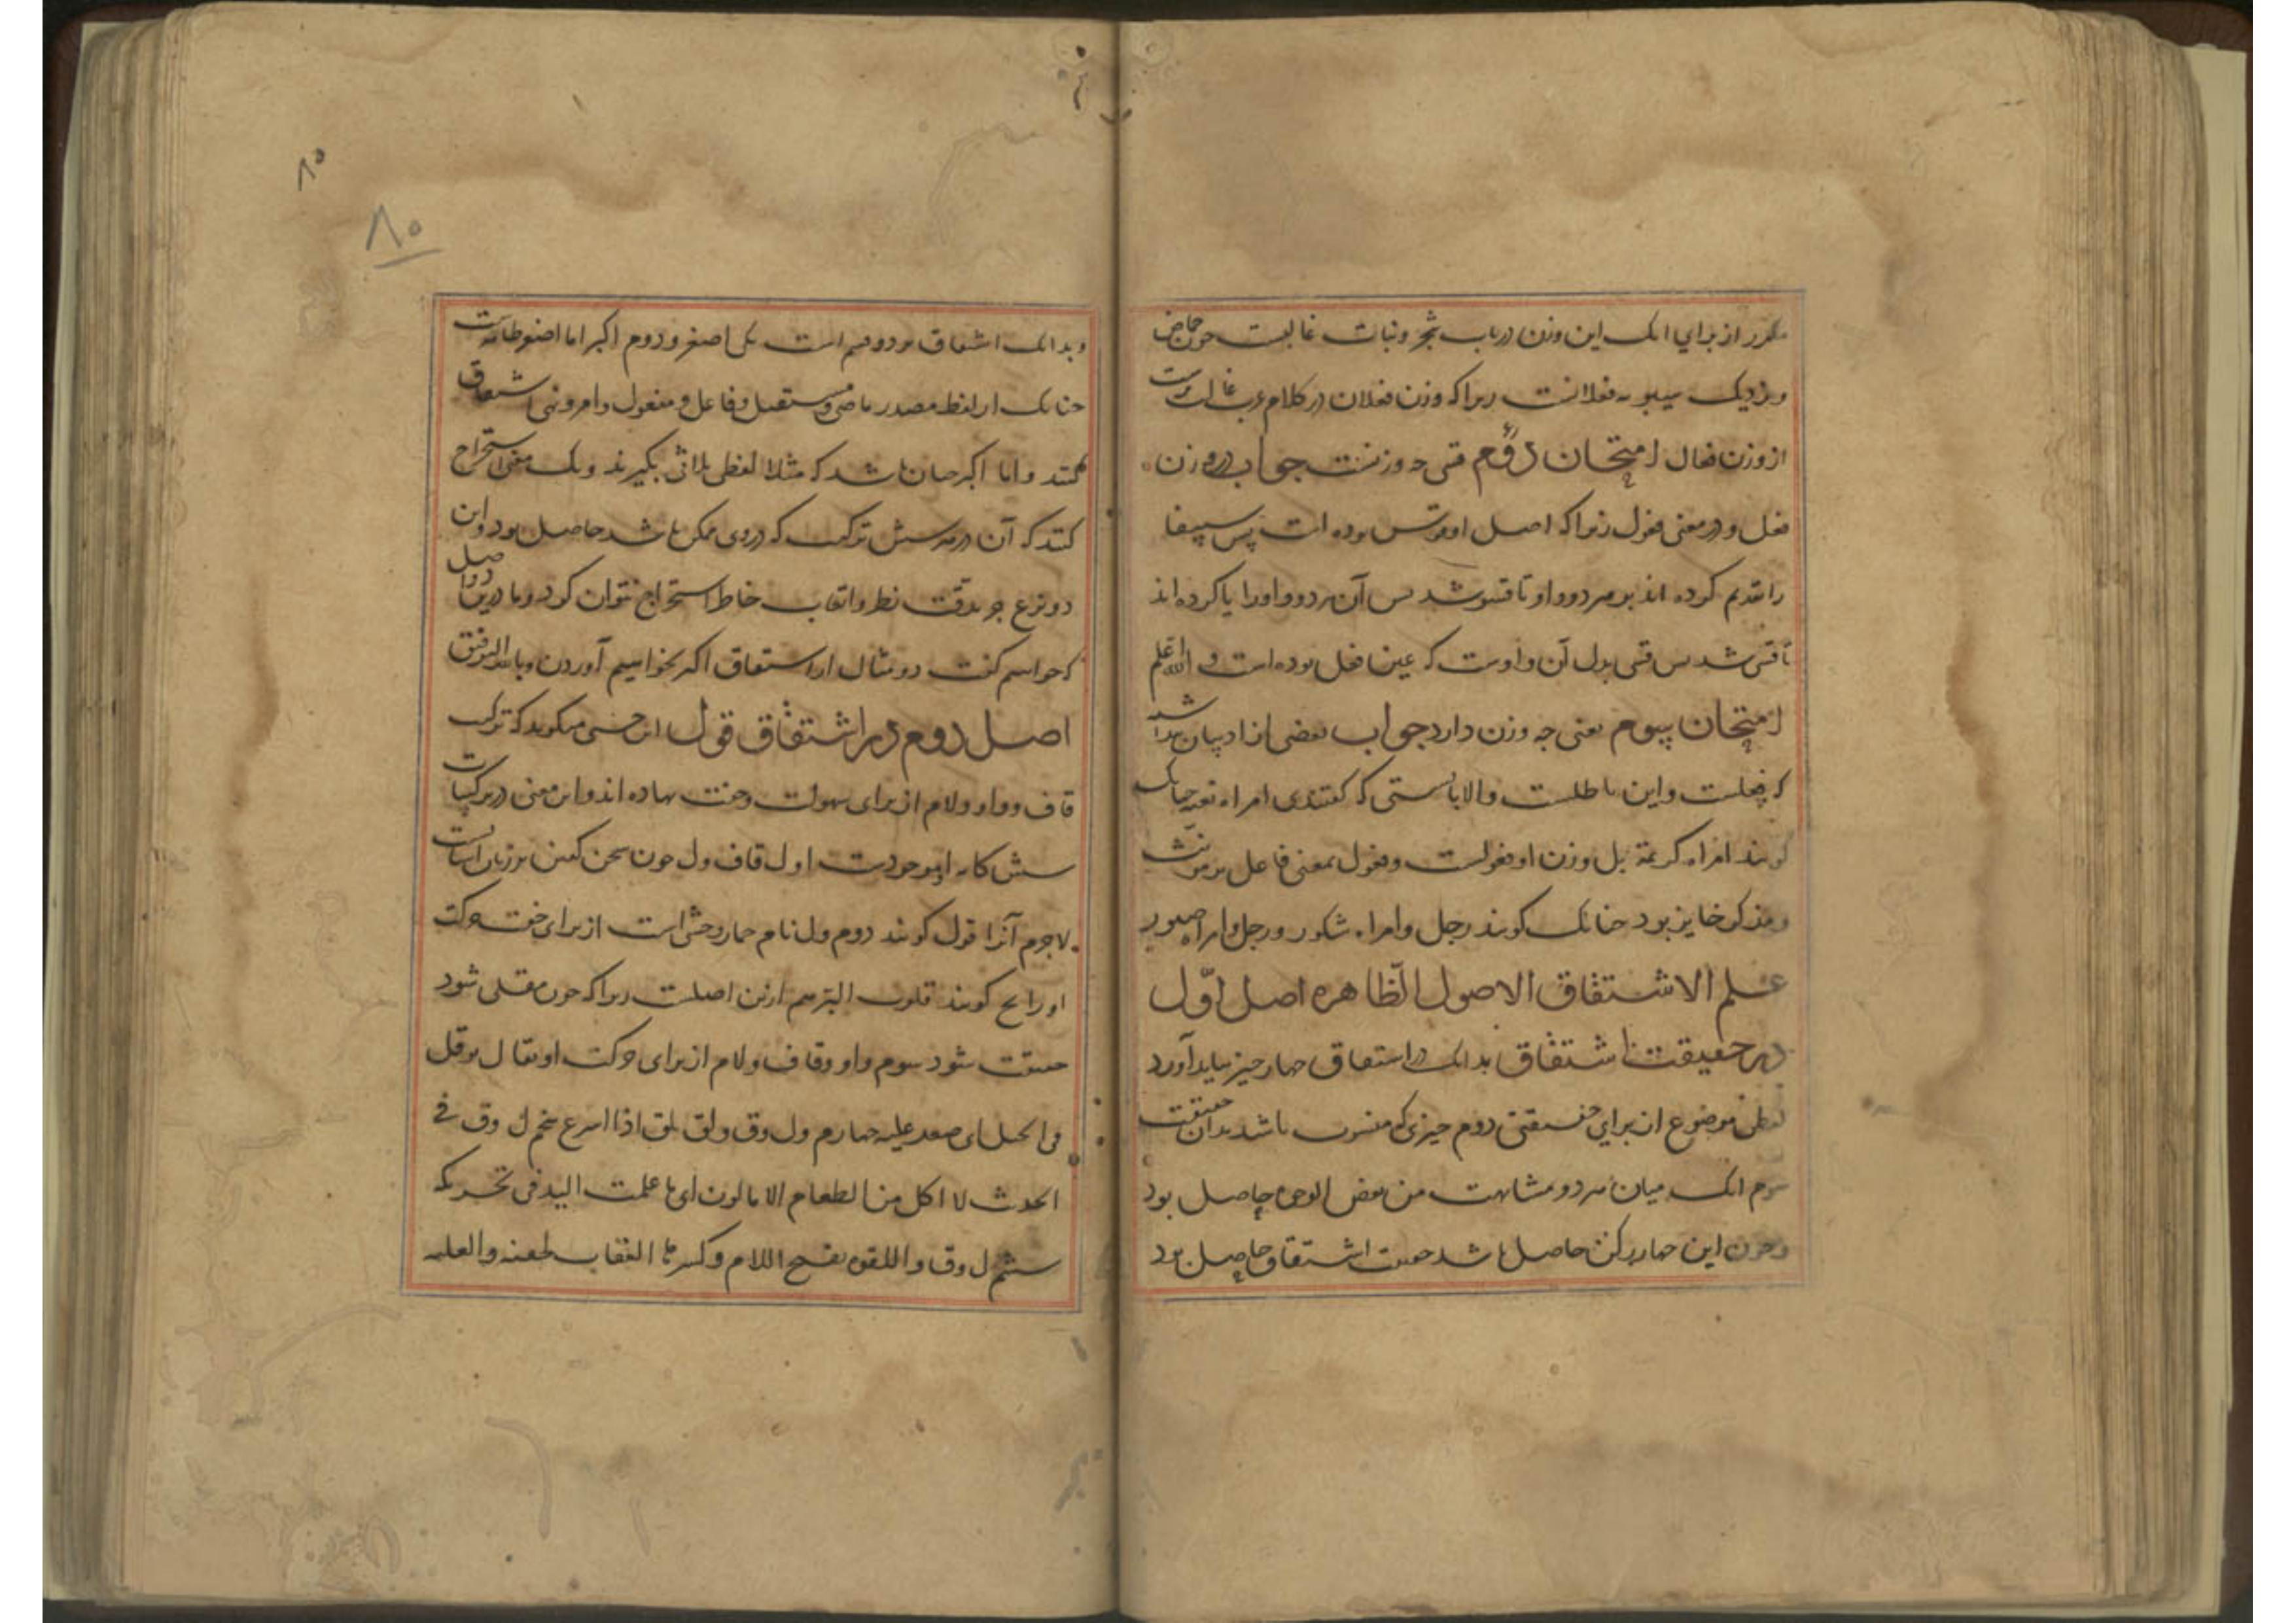 مکرر از برای انک این وزن در باب شجر و نبات غالبست چون حماض
و نزدیک سیبویه فعلانست زیرا که وزن فعلان در کلام عرب غالب ترست
از وزن فعال امتحان دوم قسی چه وزنست جواب در وزن
فعل و در معنی فعول زیرا که اصل او قووس بوده است پس سین فا
را تقدیم کرده اند بر هر دو واو تا قسوو شد پس آن هر دو واو را یا کرده اند
تا قسی شد پس قسی بدل آن واوست که عین فعل بوده است و الله اعلم
امتحان سوم بغی چه وزن دارد جواب بعضی از ادیبان
که فعیلست و این باطلست والا بایستی که گفتندی امراه بغیه چنانک
گویند امراه کریمة بل وزن او فعولست و فعول بمعنی فاعل بر مونث
و مذکر جایز بود چنانک گویند رجل و امراه شکور و رجل و امراه صبور
علم الاشتقاق الاصول الظاهره اصل اول
در حقیقت اشتقاق بدانک در اشتقاق چهار چیز بباید آورد
لفظی موضوع از برای حقیقتی دوم چیزی که منسوب باشد بدان حقیقت
سوم انک میان هر دو مشابهت من بعض الوجوه حاصل بود
و چون این چهار رکن حاصل باشد حقیقت اشتقاق حاصل بود
۸۰
۸۰
و بدانک اشتقاق بر دو قسم است یکی اصغر و دوم اکبر اما اصغر ظاهرست
چنانک از لفظ مصدر ماضی و مستقبل و فاعل و مفعول و امر و نهی اشتقاق
کنند و اما اکبر چنان باشد که مثلا لفظی ثلاثی بگیرند و یک معنی استخراج
کنند که آن در هر شش ترکیب که در وی ممکن باشد حاصل بود و این
دو نوع جز بدقت نظر و اتعاب خاطر استخراج نتوان کرد و ما درین دو اصل
که خواهیم گفت دو مثال از اشتقاق اکبر بخواهیم آوردن و بالله التوفیق
اصل دوم در اشتقاق قول ابن جنی میگوید که ترکیب
قاف و واو و لام از برای سهولت و خفت نهاده اند و این معنی در ترکیبات
شش کانه او موجودست اول قاف ول چون سخن گفتن بر زبان آسانست
لاجرم آنرا قول گویند دوم ول نام حمار وحشی است از برای خفت حرکت
حقیقت شود سوم واو و قاف و لام از برای حرکت او یقال وقل
فی الجبل ای صعد علیه چهارم ول وق ولق یلق اذا اسرع پنجم ل وق فی
الحدیث لا اکل من الطعام الا ما لوق لی ای ما عملت الید فی تحریکه
ششم ل وق و اللقوه بفتح اللام و کسرها العقاب لخفته و